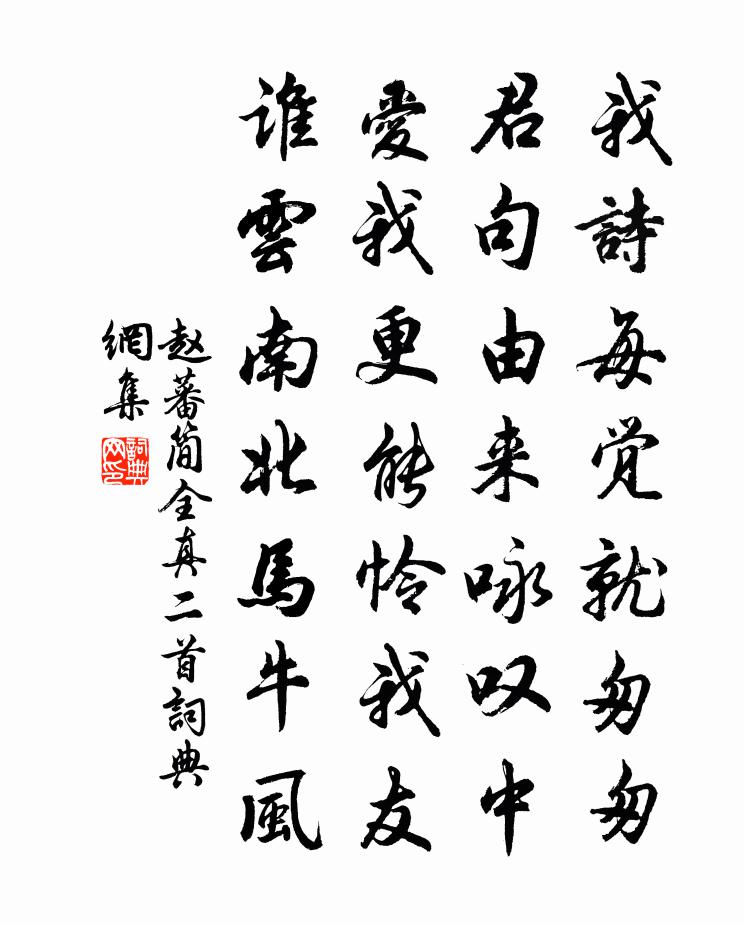 我詩每觉就匆匆
君句由来咏叹中
愛我更能怜我友
谁雲南北馬牛風
赵蕃简全真二首詞典
網集
詞典
网印